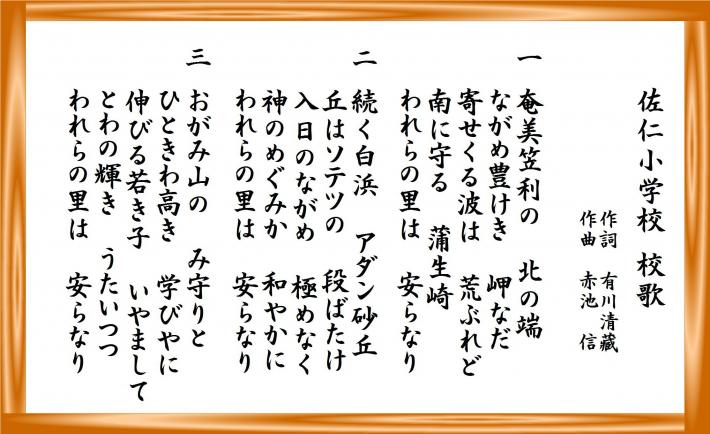 佐仁小学校 校歌
作詞 有川清藏
作曲 赤池 信
一 奄美笠利の 北の端
ながめ豊けき 岬なだ
寄せくる波は 荒ぶれど
南に守る 蒲生崎
われらの里は 安らなり
二 続く白浜 アダン砂丘
丘はソテツの 段ばたけ
入日のながめ 極めなく
神のめぐみか 和やかに
われらの里は 安らなり
三 おがみ山の み守りと
ひときわ高き 学びやに
伸びる若き子 いやまして
とわの輝き うたいつつ
われらの里は 安らなり